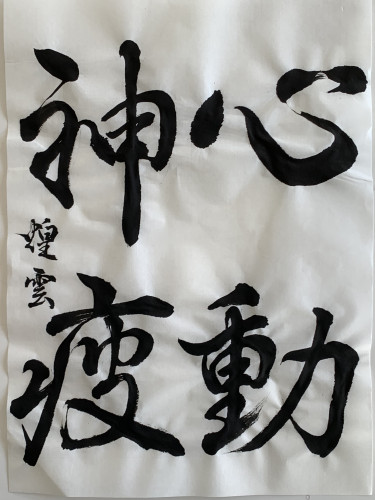 心動
神疲
煌雲